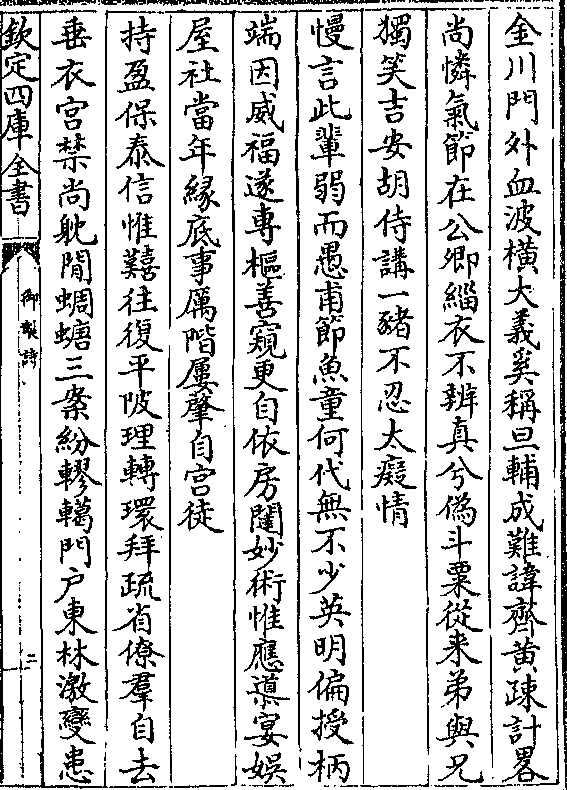 金川門外血波横大義奚稱旦輔成難諱齊黄疎計畧
尚憐氣節在公卿緇衣不辨真兮偽斗粟從来弟與兄
獨笑吉安胡侍講一豬不忍太癡情
慢言此輩弱而愚甫節魚童何代無不少英明偏授柄
端因威福遂專樞善窺更自依房闥妙術惟應導宴娱
屋社當年緣底事厲階屢肇自宫徒
持盈保泰信惟囏往復平陂理轉環拜疏省僚羣自去
垂衣宫禁尚躭閒蜩螗三案紛轇轕門户東林激變患
欽定四庫全書
御製詩
二